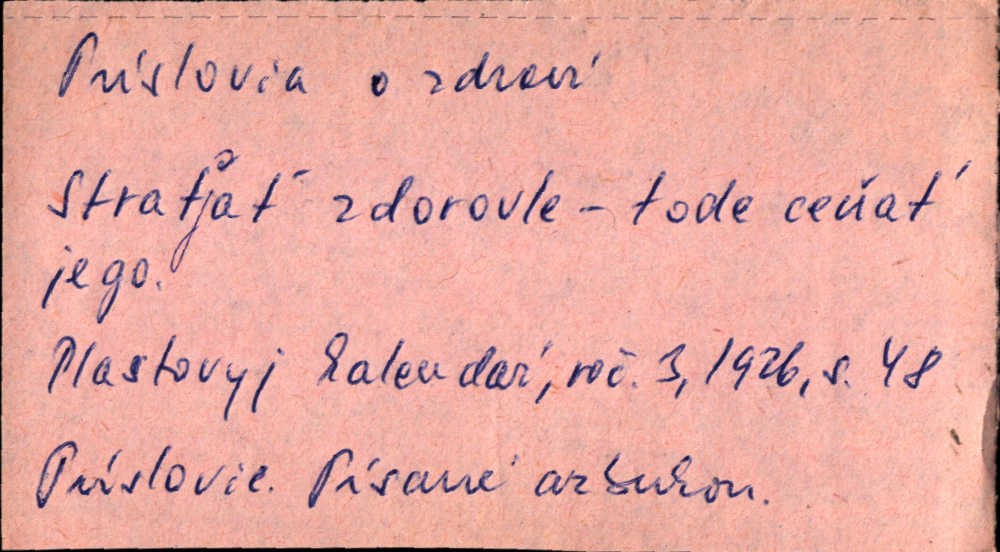 Príslovia o zdraví
Stratjat́ zdorovle – tode ceňať
jego.
Plastovyj kalendar, roč. 3, 1926, s. 48
Príslovie. Písané azbukou.